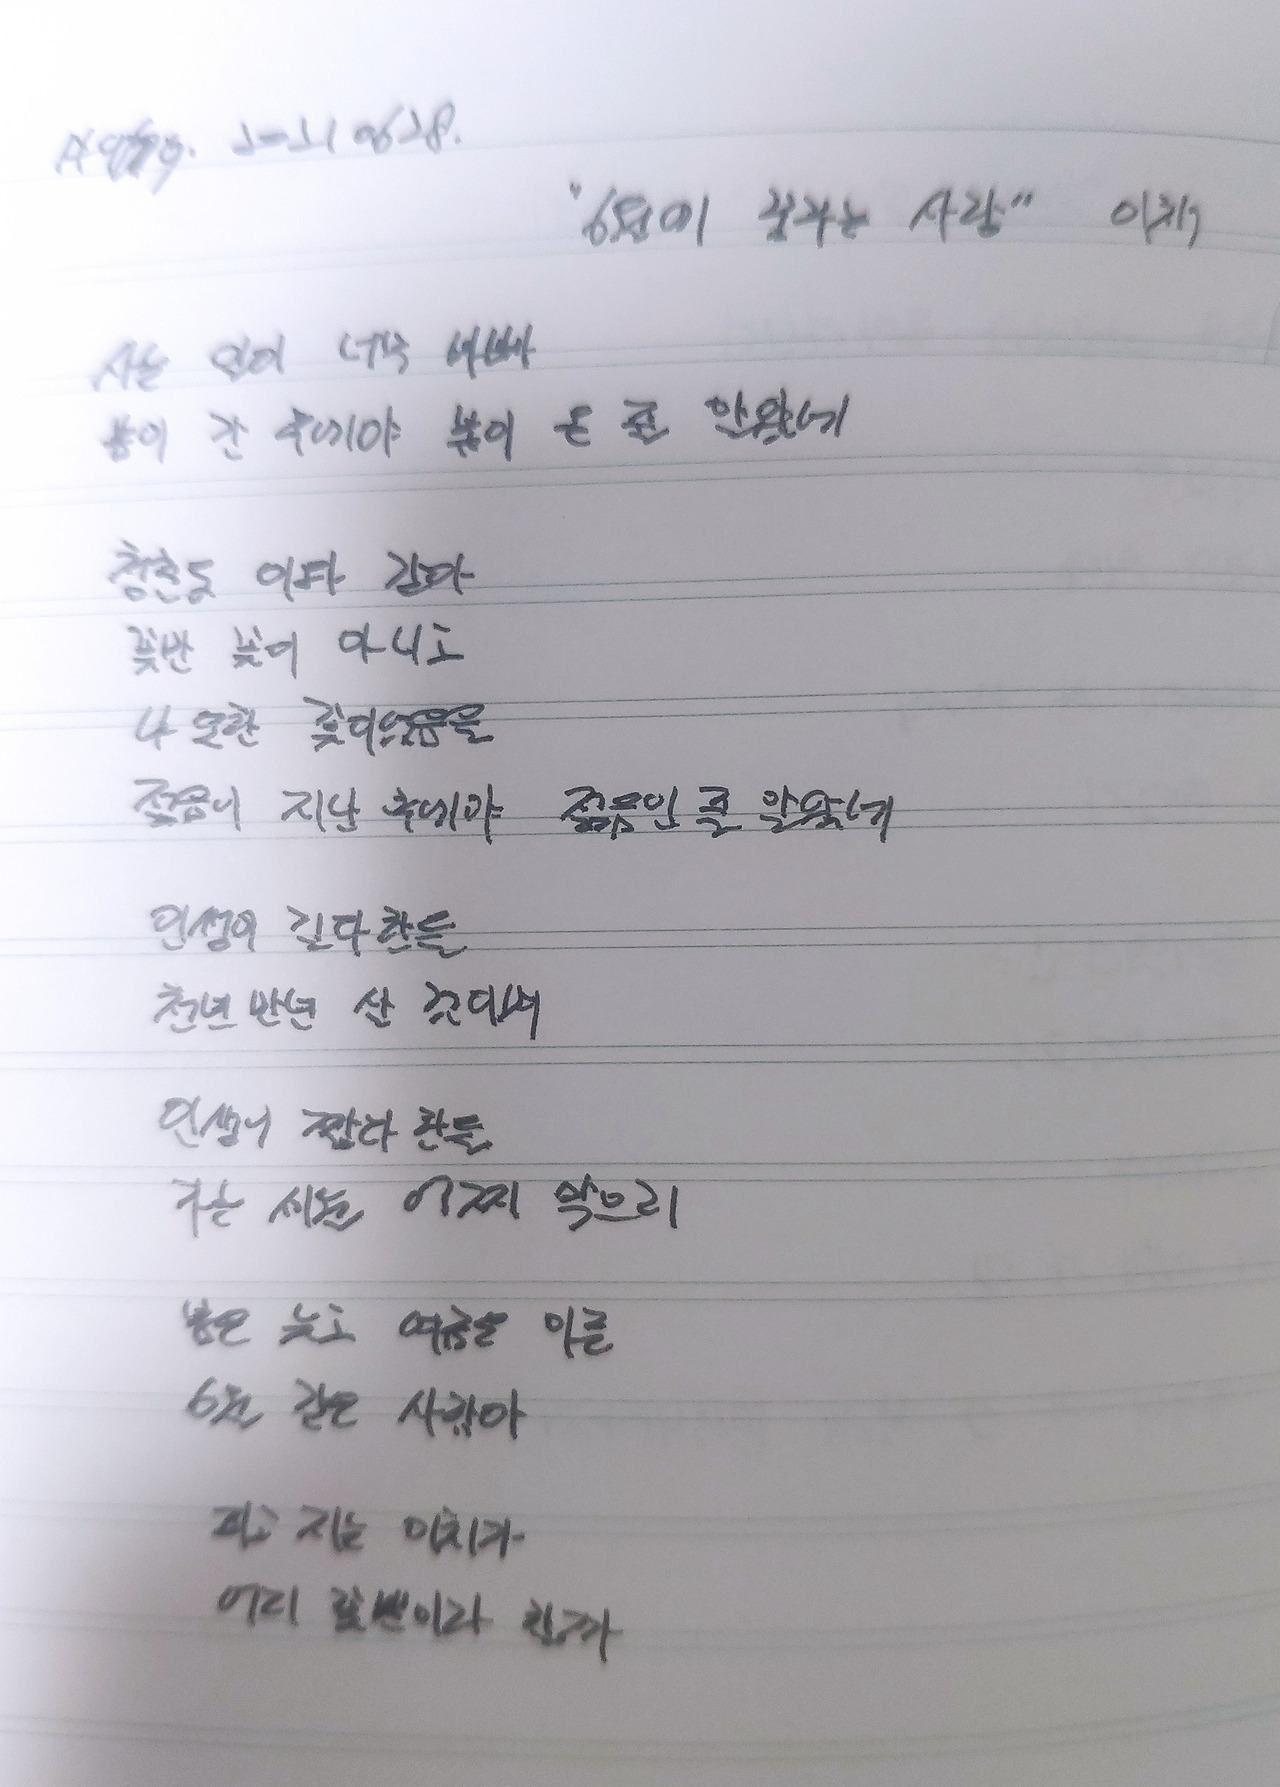 "6월이 꿈꾸는 사랑" 이채
사는 일이 너무 바빠
봄이 간 후에야 봄이 온 줄 알았네
청춘도 이와 같다
꽃만 꽃이 아니고
나 또한 꽃이었음을
젊음이 지난 후에야 젊음인 줄 알았네
인생이 길다 한들
천년 만년 살 것이며
인생이 짧다 한들
가는 세월 어찌 막으리
봄은 늦고 여름은 이른
6월 같은 사람아
피고 지는 이치가
어디 꽃뿐이라 할까